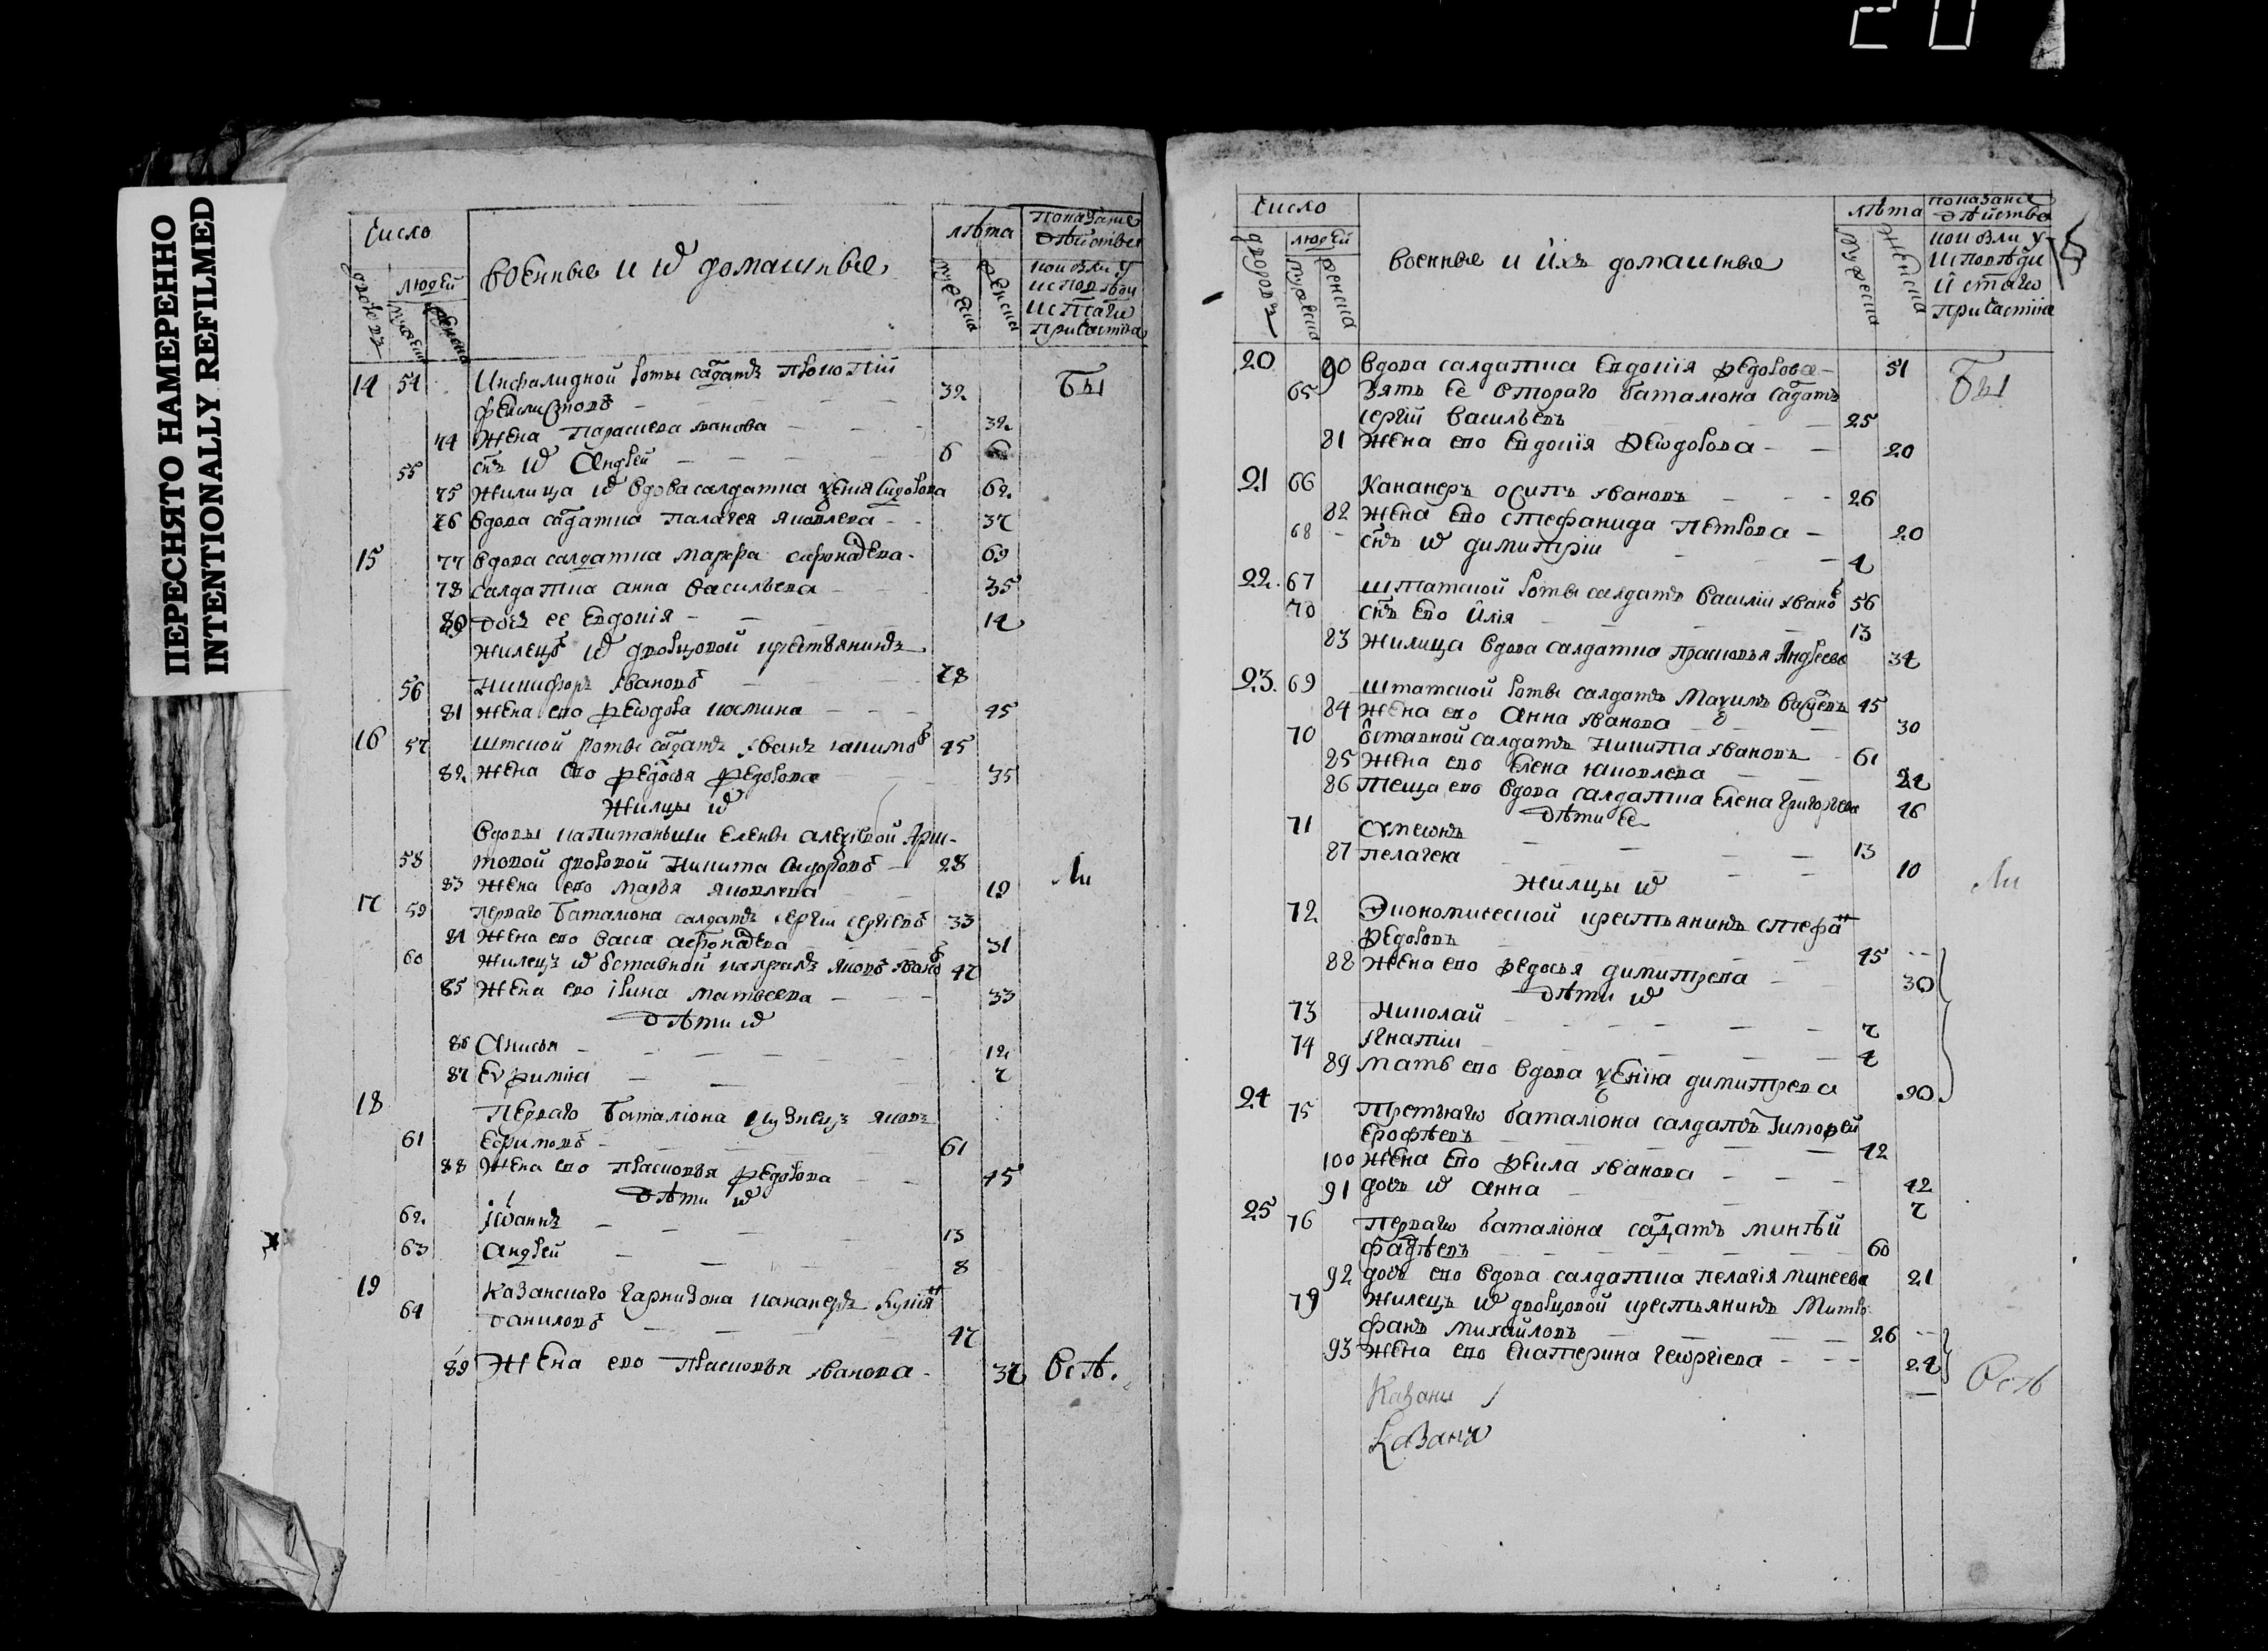 20
ПЕРЕСНЯТО НАМЕРЕННО
INTENTIONALLY REFILMED
число
людей
военные и их домашные
лѣта
показание дѣйства
кои были у исповѣди и с͠таго причастиа
14 54 Инвалидной роты салдатъ Прокопий
Филиповъ 32
74 жена Параскева иванова 32
55 сн͠ъ их Андрей 6
75 жилица их вдова салдатка ѯения сидорова 62
76 вдова салдатка палагея яковлева 37
15 77 вдова салдатка марфа
78 салдатка анна васильева 35
80 дочь ее Евдокія 14
жилецъ их дворцовой крестьянинъ
56 Никифоръ ивановъ 78
81 жена ево
16 57 штской роты салдатъ иванъ 45
82 жена ево федосья федорова 35
жилцы их
вдовы капитаньши елены алеѯѣвой
58 дворовой Никита Сидоровъ 28
83 жена ево марья яковлева 19
17 59 перваго баталиона салдатъ сергѣи сергѣевъ 33
84 жена ево 31
60 жилецъ их отставной капралъ яковъ иванов 47
85 жена ево ірина матвеева 33
дѣти их
86 Анисья 12
87 Еѵфимиа 7
18 перваго баталіона кузнецъ яковъ
61 Ефимовъ 61
88 жена ево прасковья федорова 45
дѣти их
62 іѡаннъ 13
63 андрей 8
19 казанского гарнизона канаперъ
64 даниловъ 47
89 жена ево прасковья иванова 37
Бы
ли
всѣ.
число
людей
военные и ихъ домашные
лѣта
показание дѣйства
кои были у исповѣди и стагѡ причастиıа
20 90 вдова салдатка Евдокія федорова 51
65 зять ее втораго баталиона салдатъ
сергѣй васильевъ 25
81 жена ево Евдокія феѡдорова 20
21 66 Канапера осипъ ивановъ 26
82 жена ево стефанида петрова 20
68 сн͠ъ их димитріи 4
22 67 штатской роты салдатъ василіи иванов 56
70 сн͠ъ ево илія 13
83 жилица вдова салдатка прасковья Андреева 34
23 69 штатской роты салдатъ 45
84 жена ево анна иванова 30
70 отставной салдатъ никита ивановъ 61
85 жена ево елена яковлева 24
86 теща ево вдова салдатка елена григорьева 46
дѣти ее
71 сѵмеѡнъ 13
87 пелагея 10
жилцы их
72 Экономической крестьянинъ стефанъ
федоровъ 45
88 жена ево федосья димитрева 30
дѣти их
73 николай 7
74 игнатіи 4
89 мать ево вдова ѯенія димитрева 90
24 75 третьягѡ баталіона салдатъ тимофей
Ерофѣевъ 42
100 жена ево фекла иванова 42
91 дочь их анна 7
25 76 перваго баталіона салдатъ минѣй
фадѣевъ 60
92 дочь ево вдова салдатка пелагія минеева 21
79 жилецъ их дворцовой крестьянинъ Митро
фанъ михайловъ 26
93 жена ево екатерина геѡргіева 24
Казань
Казань
Бы
ли
всѣ